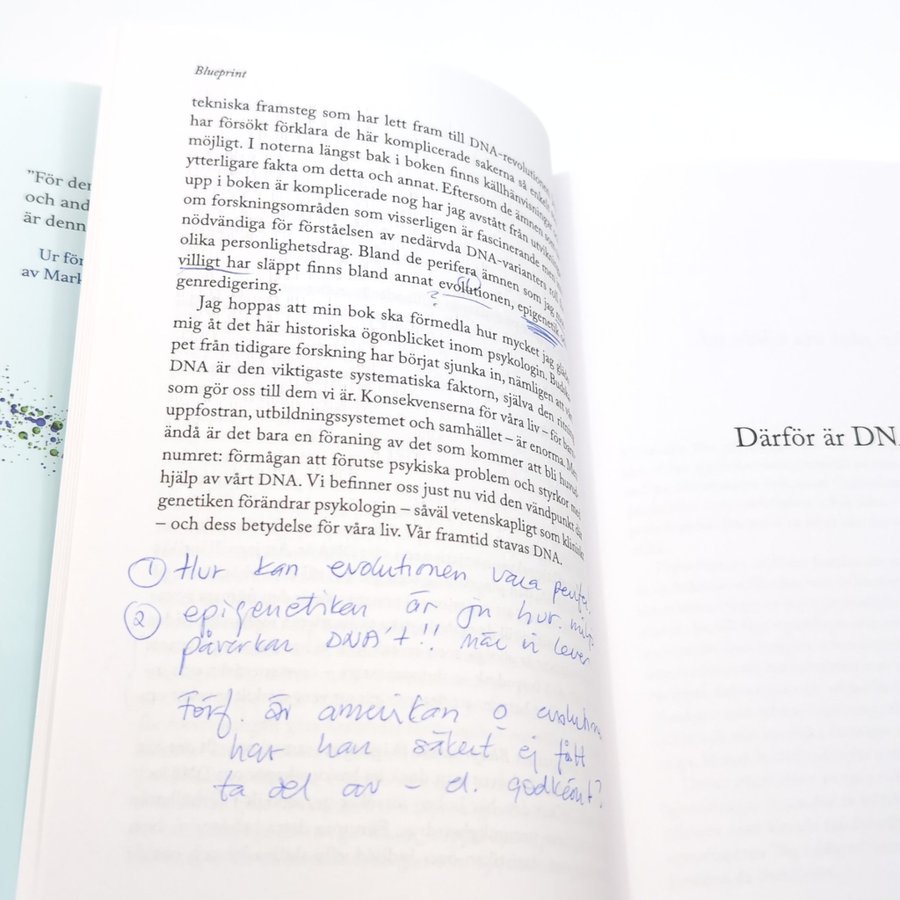 Blueprint
tekniska framsteg som har lett fram till DNA-revolutionen
har försökt förklara de här komplicerade sakerna så enkelt
möjligt. I noterna längst bak i boken finns källhänvisningar
ytterligare fakta om detta och annat. Eftersom de ämnen som
upp i boken är komplicerade nog har jag avstått från
om forskningsområden som visserligen är fascinerande men
nödvändiga för förståelsen av nedärvda DNA-varianters roll
olika personlighetsdrag. Bland de perifera ämnen som jag
villigt har släppt finns bland annat evolutionen, epigenetik
genredigering.
?
Jag hoppas att min bok ska förmedla hur mycket jag
mig åt det här historiska ögonblicket inom psykologin.
pet från tidigare forskning har börjat sjunka in, nämligen att
DNA är den viktigaste systematiska faktorn, själva den ritning
som gör oss till dem vi är. Konsekvenserna för våra liv – för
uppfostran, utbildningssystemet och samhället – är enorma. Men
ändå är det bara en föraning av det som kommer att bli
numret: förmågan att förutse psykiska problem och styrkor med
hjälp av vårt DNA. Vi befinner oss just nu vid den vändpunkt där
genetiken förändrar psykologin – såväl vetenskapligt som kliniskt
– och dess betydelse för våra liv. Vår framtid stavas DNA.
① Hur kan evolutionen vara
② epigenetiken är ju hur
påverkar DNA't!! när vi lever
Förf. är amerikan o
har han säkert ej fått
ta del av – d. godkänt?
"För den
och and
är denn
Ur för
av Mark
Därför är DNA